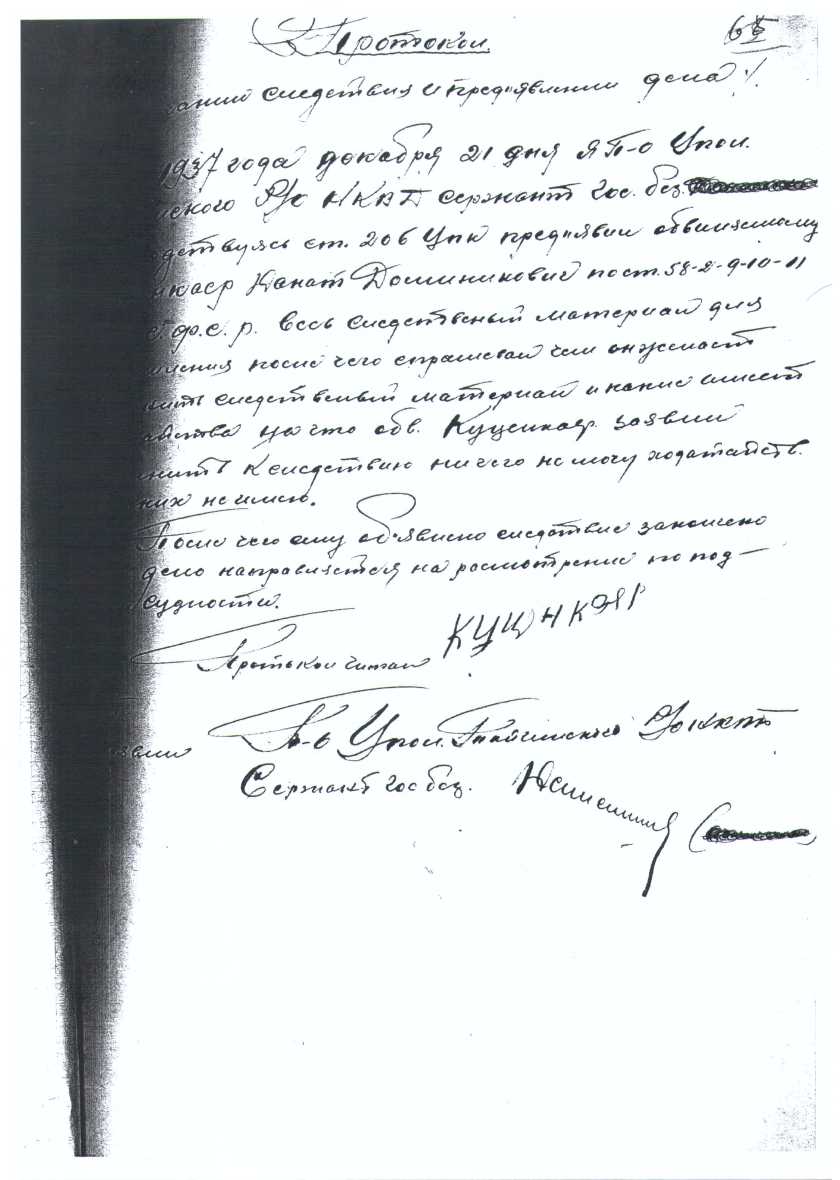 65
Протокол.
ании следствия и пред'явлении дела
1937 года декабря 21 дня я П-о Упол.
ского Р/о НКВД сержант гос. без.
одствуясь ст. 206 УПК пред'явил обвиняемому
Канат Доминикович по ст. 58-2-9-10-11
с.ф.с.р. весь следственый материал для
мления после чего спрашевал чем он может
нить следственый материал и какие имеет
айства на что обв. Куцинкаер. заявил
нить к следствию ничего не могу ходатайств.
ких не имею.
После чего ему об'явлено следствие закончено
дело направляется на расмотрение по под-
судности.
Протокол читал КУЦИНКЭЯР
явил П-о Упол. РО НКВД
Сержант гос без.